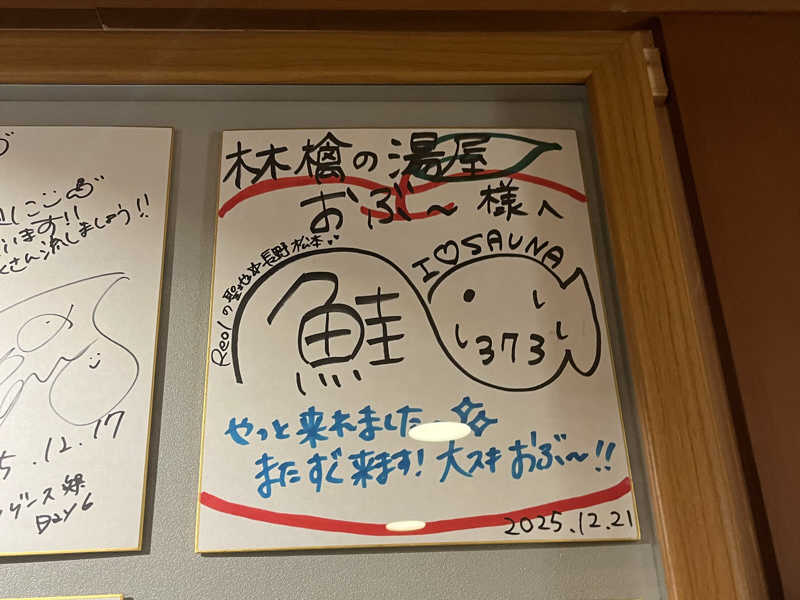 林檎の湯屋
おぶ～ 様へ
Reolの聖地☆長野松本
I♡SAUNA
鮭
373
やっと来れました〜
またすぐ来ます! 大スキ おぶ〜!!
2025.12.21
います!!
さん流しましょう!!
5.12.17
Day 6